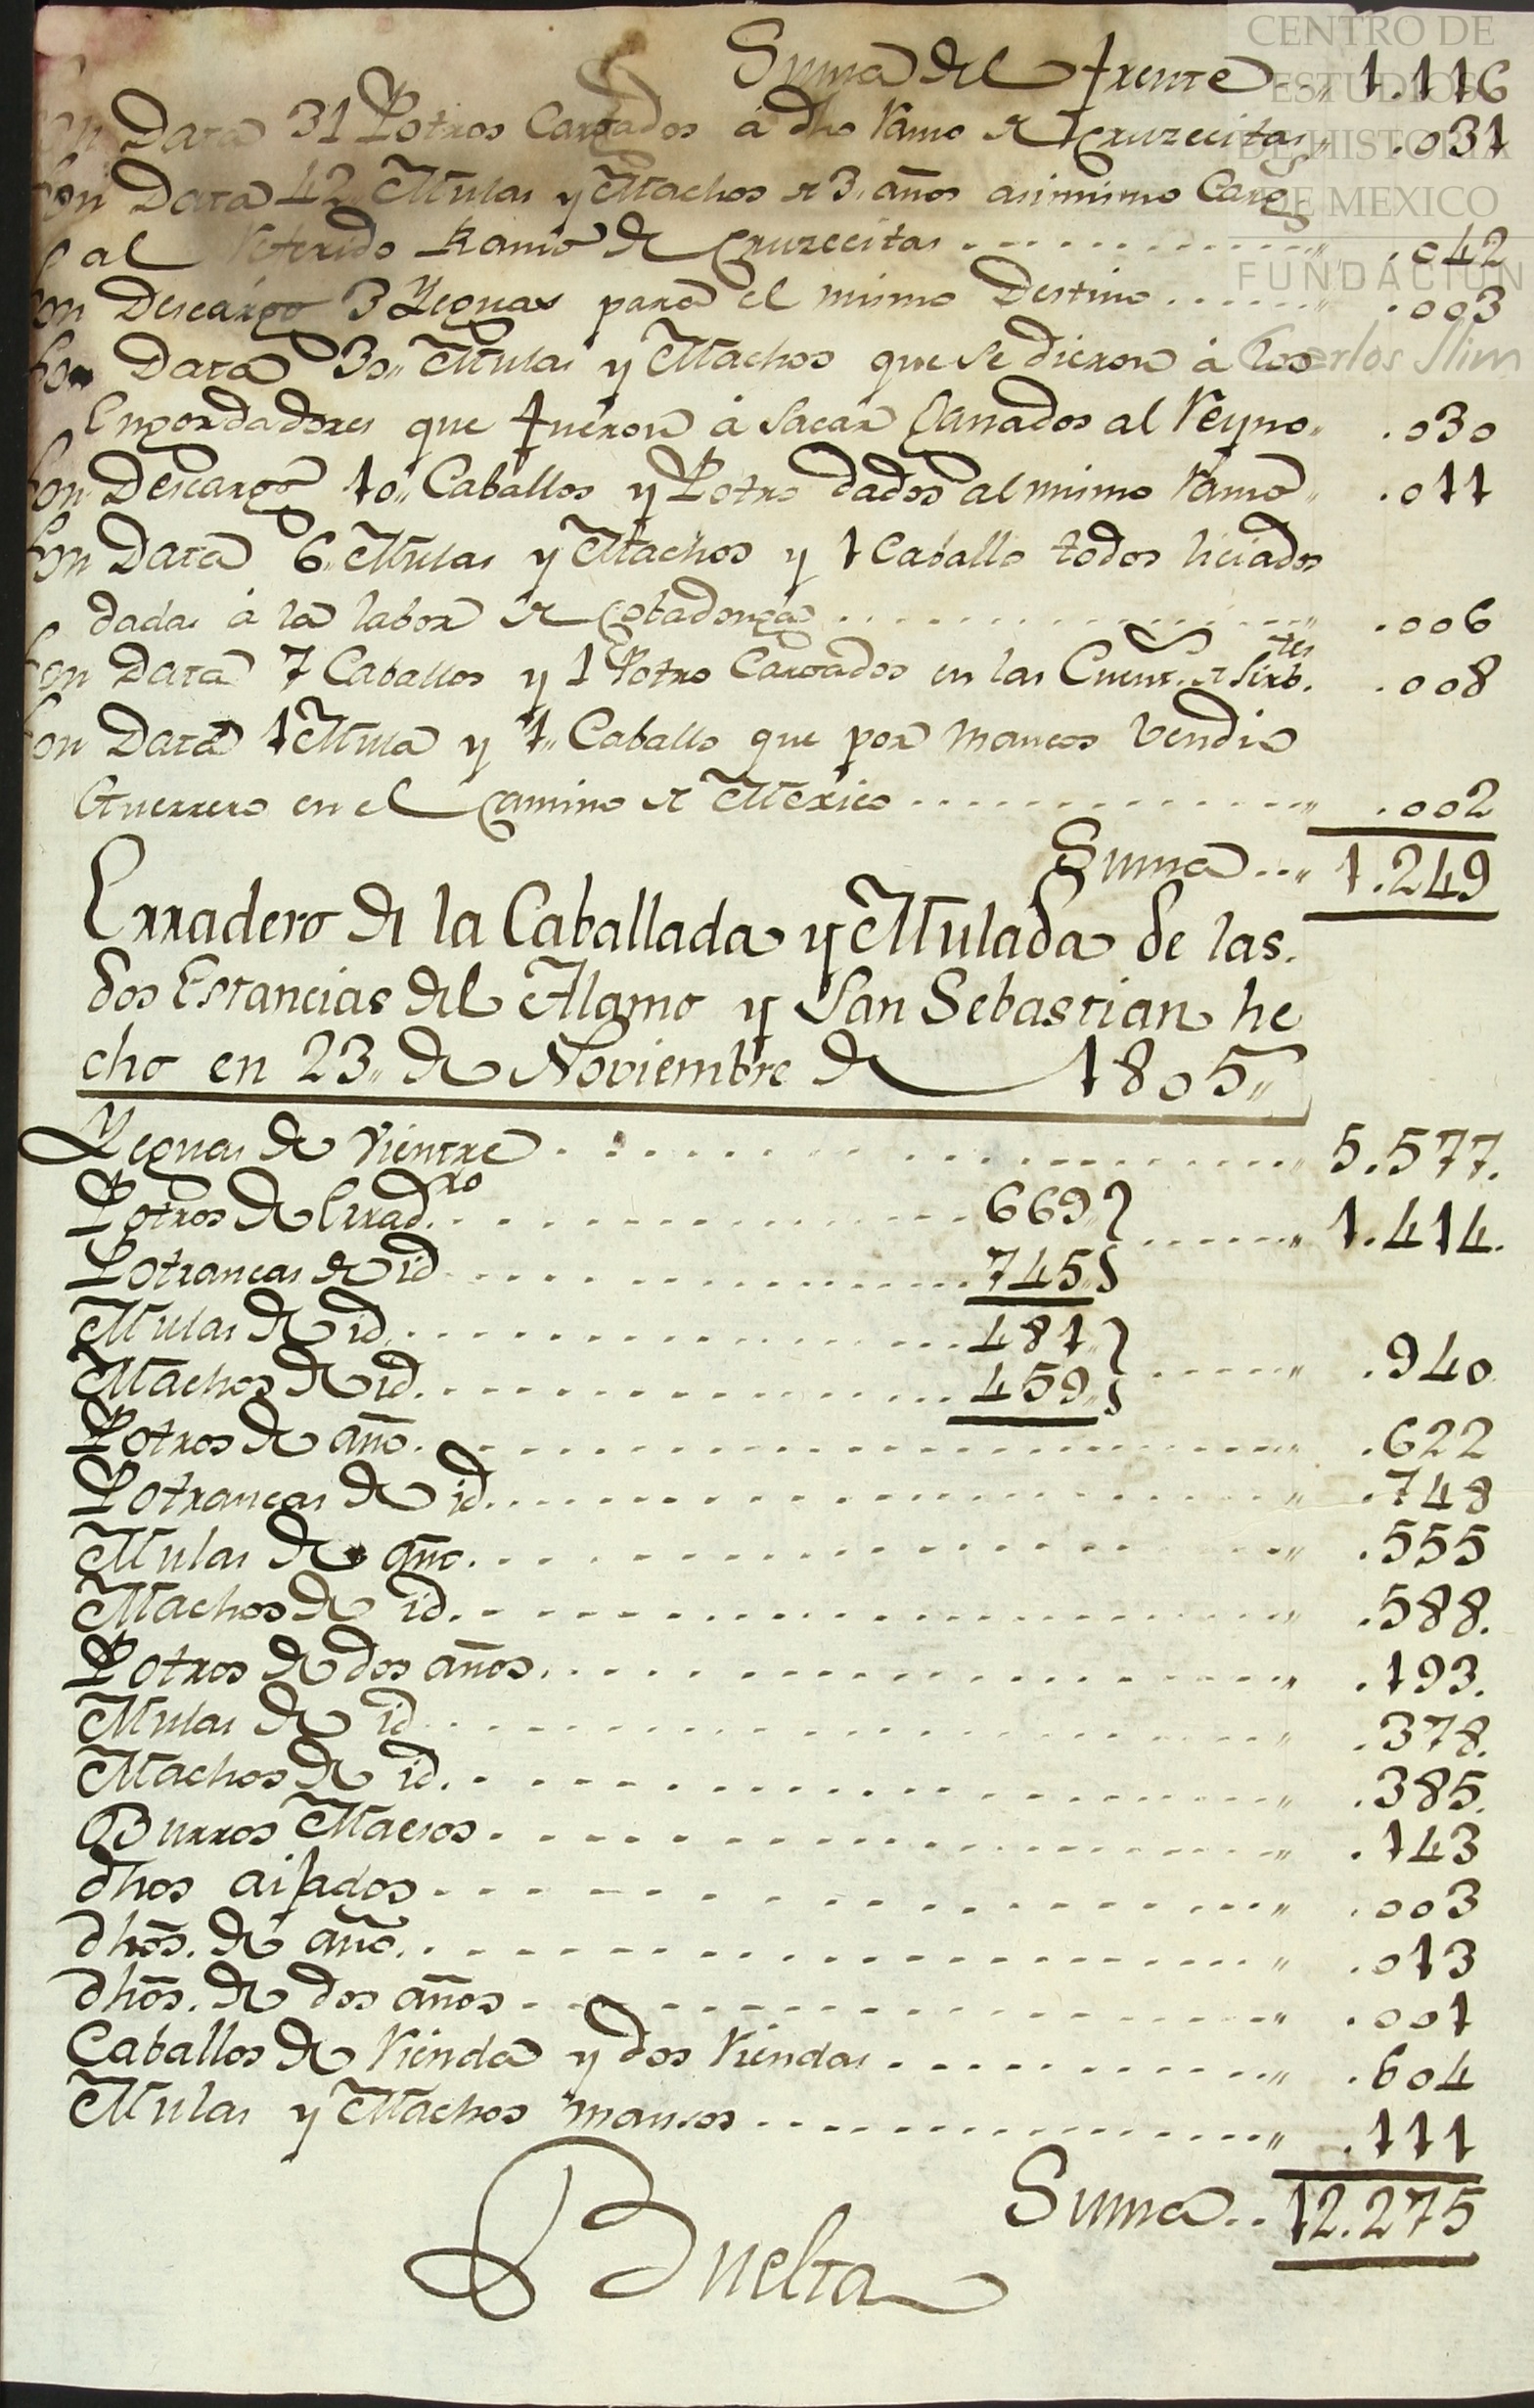 Suma del frente .. 1.116
Son Data 31 Potros Cargados á dho Ramo de Cruzecitas,, .031
Son Data 42,, Mulas y Machos de 3,, años asimismo Carg
s al Referido Ramo de Cruzecitas ............,, .042
Son Descargo 3 Yeguas para el mismo Destino ......,, .003
Son Data 30,, Mulas y Machos que se dieron á los
Engordadores que fueron á Sacar Ganados al Reyno,, .030
Son Descargo 10,, Caballos y Potro dados al mismo Ramo,, .011
Son Data 6,, Mulas y Machos y 1 Caballo todos liciados
dadas á la labor de Cobadonga ..............,, .006
Son Data 7 Caballos y 1 Potro Cargados en las Cuent.s de Sirb.tes .008
Son Data 1 Mula y 1,, Caballo que por mancos Vendió
Guerrero en el Camino de Mexico ..............,, .002
Suma ..,, 1.249
Erradero de la Caballada y Mulada de las
dos Estancias del Alamo y San Sebastian he
cho en 23,, de Noviembre de 1805,,
Yeguas de Vientre ..............,, 5.577.
Potros de Errad.ro .............. 669,,
1.414.
Potrancas de id .............. 745,,
Mulas de id .............. 481,,
.940
Machos de id. .............. 459,,
Potros de año. ..............,, .622
Potrancas de id. ..............,, .748
Mulas de año. ..............,, .555
Machos de id. ..............,, .588.
Potros de dos años. ..............,, .193.
Mulas de id ..............,, .378.
Machos de id. ..............,, .385.
Burros Maesos ..............,, .143
dhos aijados ..............,, .003
dhõs. de año. ..............,, .013
dhõs. de dos años ..............,, .001
Caballos de Rienda y dos Riendas ..............,, .604
Mulas y Machos mansos ..............,, .111
Suma .. 12.275
Buelta
CENTRO DE
ESTUDIOS
DE HISTORIA
DE MEXICO
FUNDACION
Carlos Slim